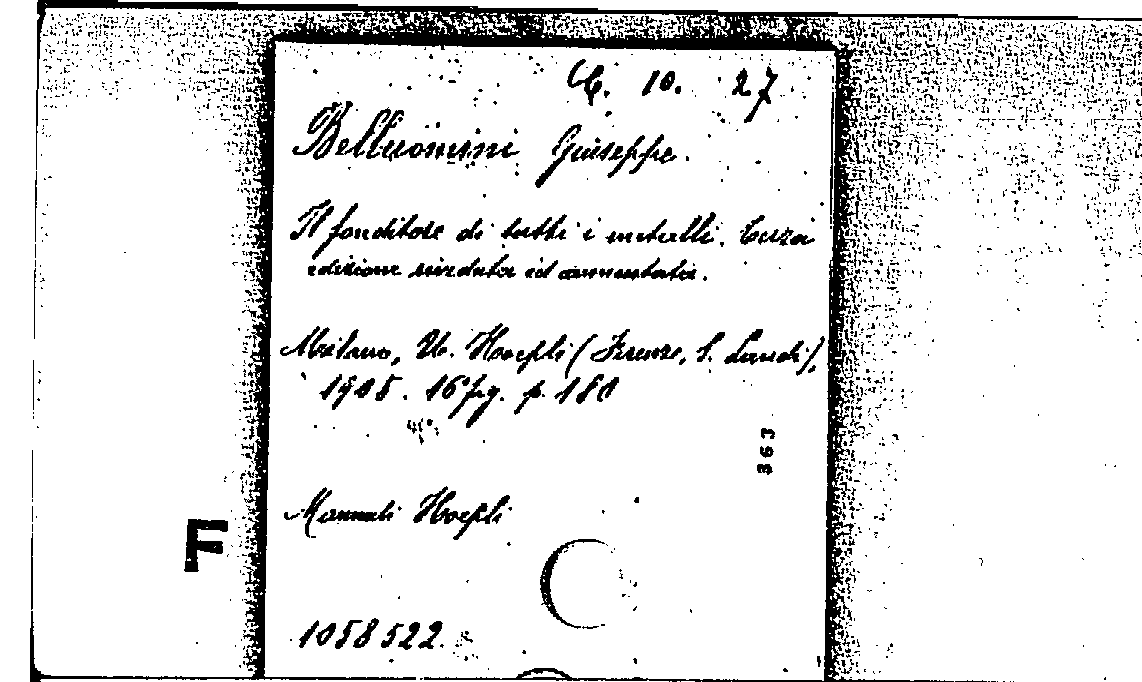 C. 10. 27
Belluomini Giuseppe.
Il fonditore di tutti i metalli. Terza
edizione riveduta ed aumentata.
Milano, U. Hoepli (Firenze, S. Landi),
1908. 16° fig. p. 180
363
Manuali Hoepli
F
1058522.